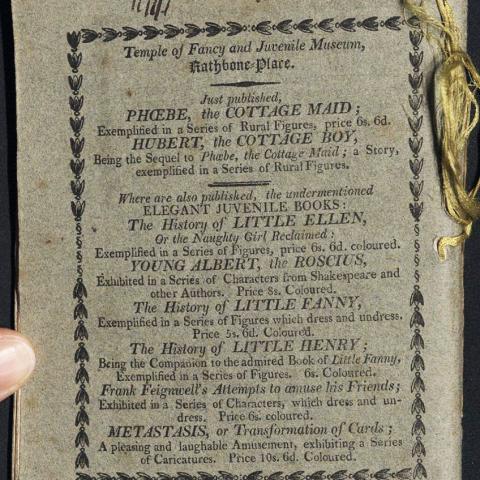 Temple of Fancy and Juvenile Museum,
Rathbone-Place.
Just published,
PHŒBE, the COTTAGE MAID;
Exemplified in a Series of Rural Figures, price 6s. 6d.
HUBERT, the COTTAGE BOY,
Being the Sequel to Phœbe, the Cottage Maid; a Story,
exemplified in a Series of Rural Figures.
Where are also published, the undermentioned
ELEGANT JUVENILE BOOKS:
The History of LITTLE ELLEN,
Or the Naughty Girl Reclaimed:
Exemplified in a Series of Figures, price 6s. 6d. coloured.
YOUNG ALBERT, the ROSCIUS,
Exhibited in a Series of Characters from Shakespeare and
other Authors. Price 8s. Coloured.
The History of LITTLE FANNY,
Exemplified in a Series of Figures which dress and undress.
Price 5s. 6d. Coloured.
The History of LITTLE HENRY;
Being the Companion to the admired Book of Little Fanny,
Exemplified in a Series of Figures. 6s. Coloured.
Frank Feignwell's Attempts to amuse his Friends;
Exhibited in a Series of Characters, which dress and un-
dress. Price 6s. coloured.
METASTASIS, or Transformation of Cards;
A pleasing and laughable Amusement, exhibiting a Series
of Caricatures. Price 10s. 6d. Coloured.